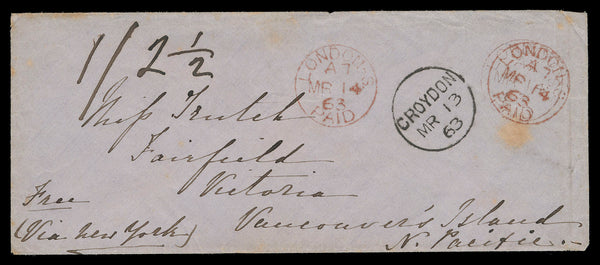 1/2½
LONDON·S
A7
MR 14
63
PAID
CROYDON
MR 13
63
LONDON·S
A7
MR 14
63
PAID
Miss Trutch
Fairfield
Victoria
Vancouver's Island
N. Pacific.
Free
(Via New York)